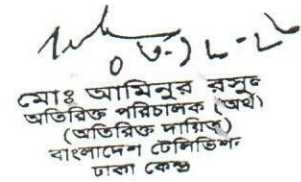 মোঃ আমিনুর রসুল
অতিরিক্ত পরিচালক (অর্থ)
(অতিরিক্ত দায়িত্ব)
বাংলাদেশ টেলিভিশন
ঢাকা কেন্দ্র